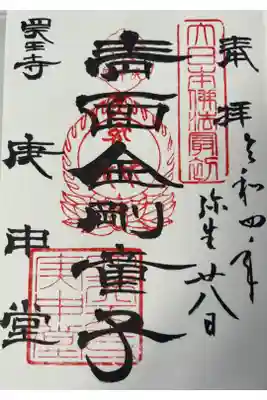 奉拝
大日本佛法最初
令和四年
弥生廿八日
青面金剛童子
四天王寺
庚申堂